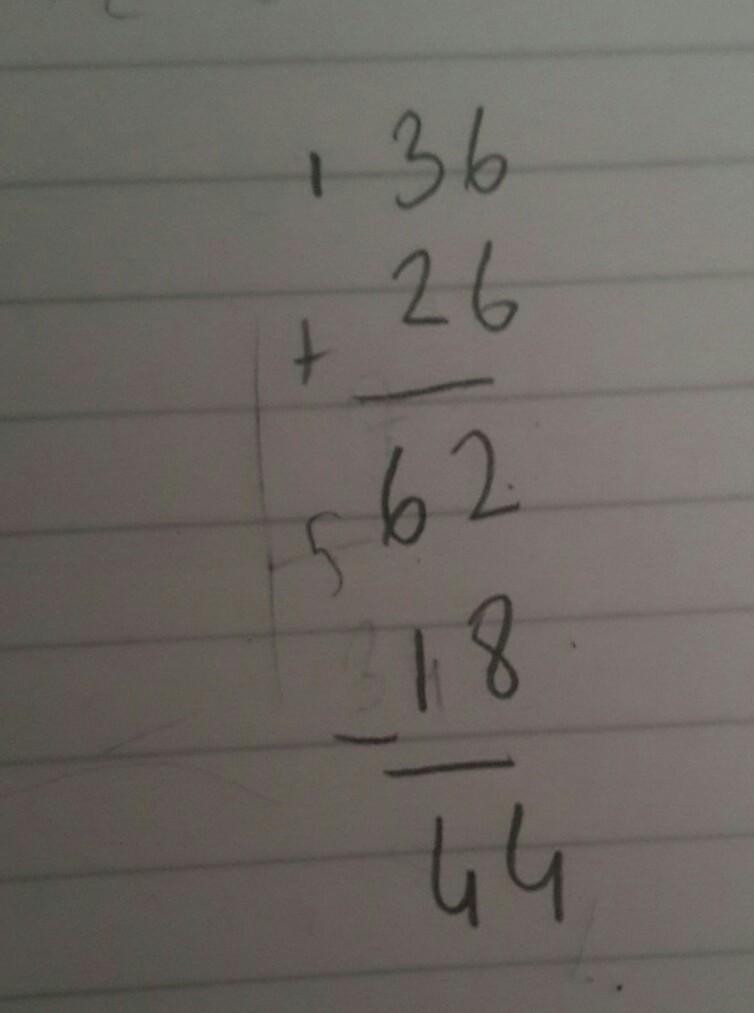 1 36
26
+
62
5
18
-
44